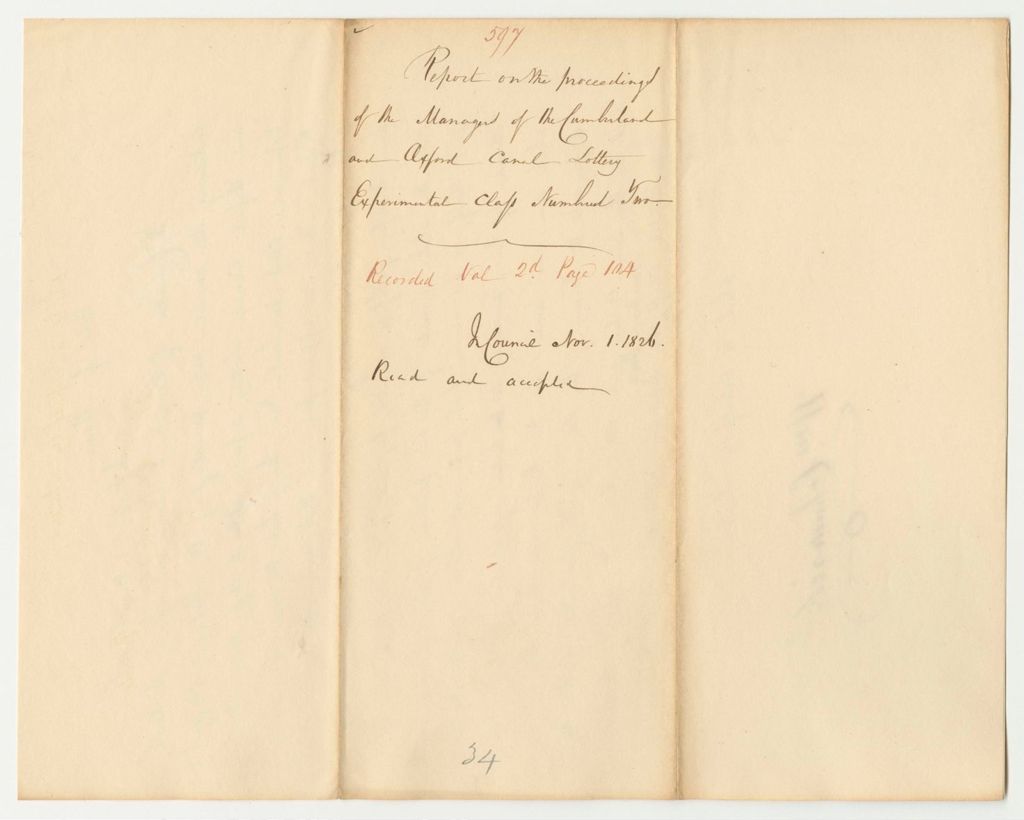 597
Report on the proceedings
of the Managers of the Cumberland
and Oxford Canal Lottery
Experimental Class Numbered Two
Recorded Vol 2d Page 104
In Council Nov. 1. 1826.
Read and accepted
34